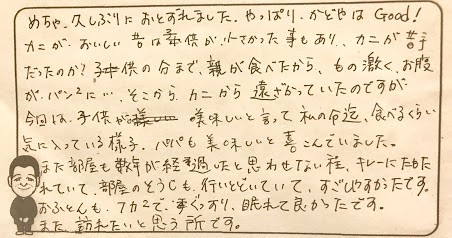 めちゃ、久しぶりにおとずれました。やっぱり、かどやはGood!
カニが、おいしい昔は子供が小さかった事もあり、カニが苦手
だったのか?子供の分まで、親が食べたから、もの激く、お腹
が、パン2に…、そこから、カニから遠ざかっていたのですが
今回は、子供が美味しいと言って私の分迄、食べるくらい
気に入っている様子。パパも美味しいと喜こんでいました。
また部屋も数年が経過したと思わせない程、キレーにたもた
れていて、部屋のそうじも、行いとどいていて、すごしやすかったです。
おふとんも、フカ2で、すぐっすり、眠れて良かったです。
また、訪れたいと思う所です。